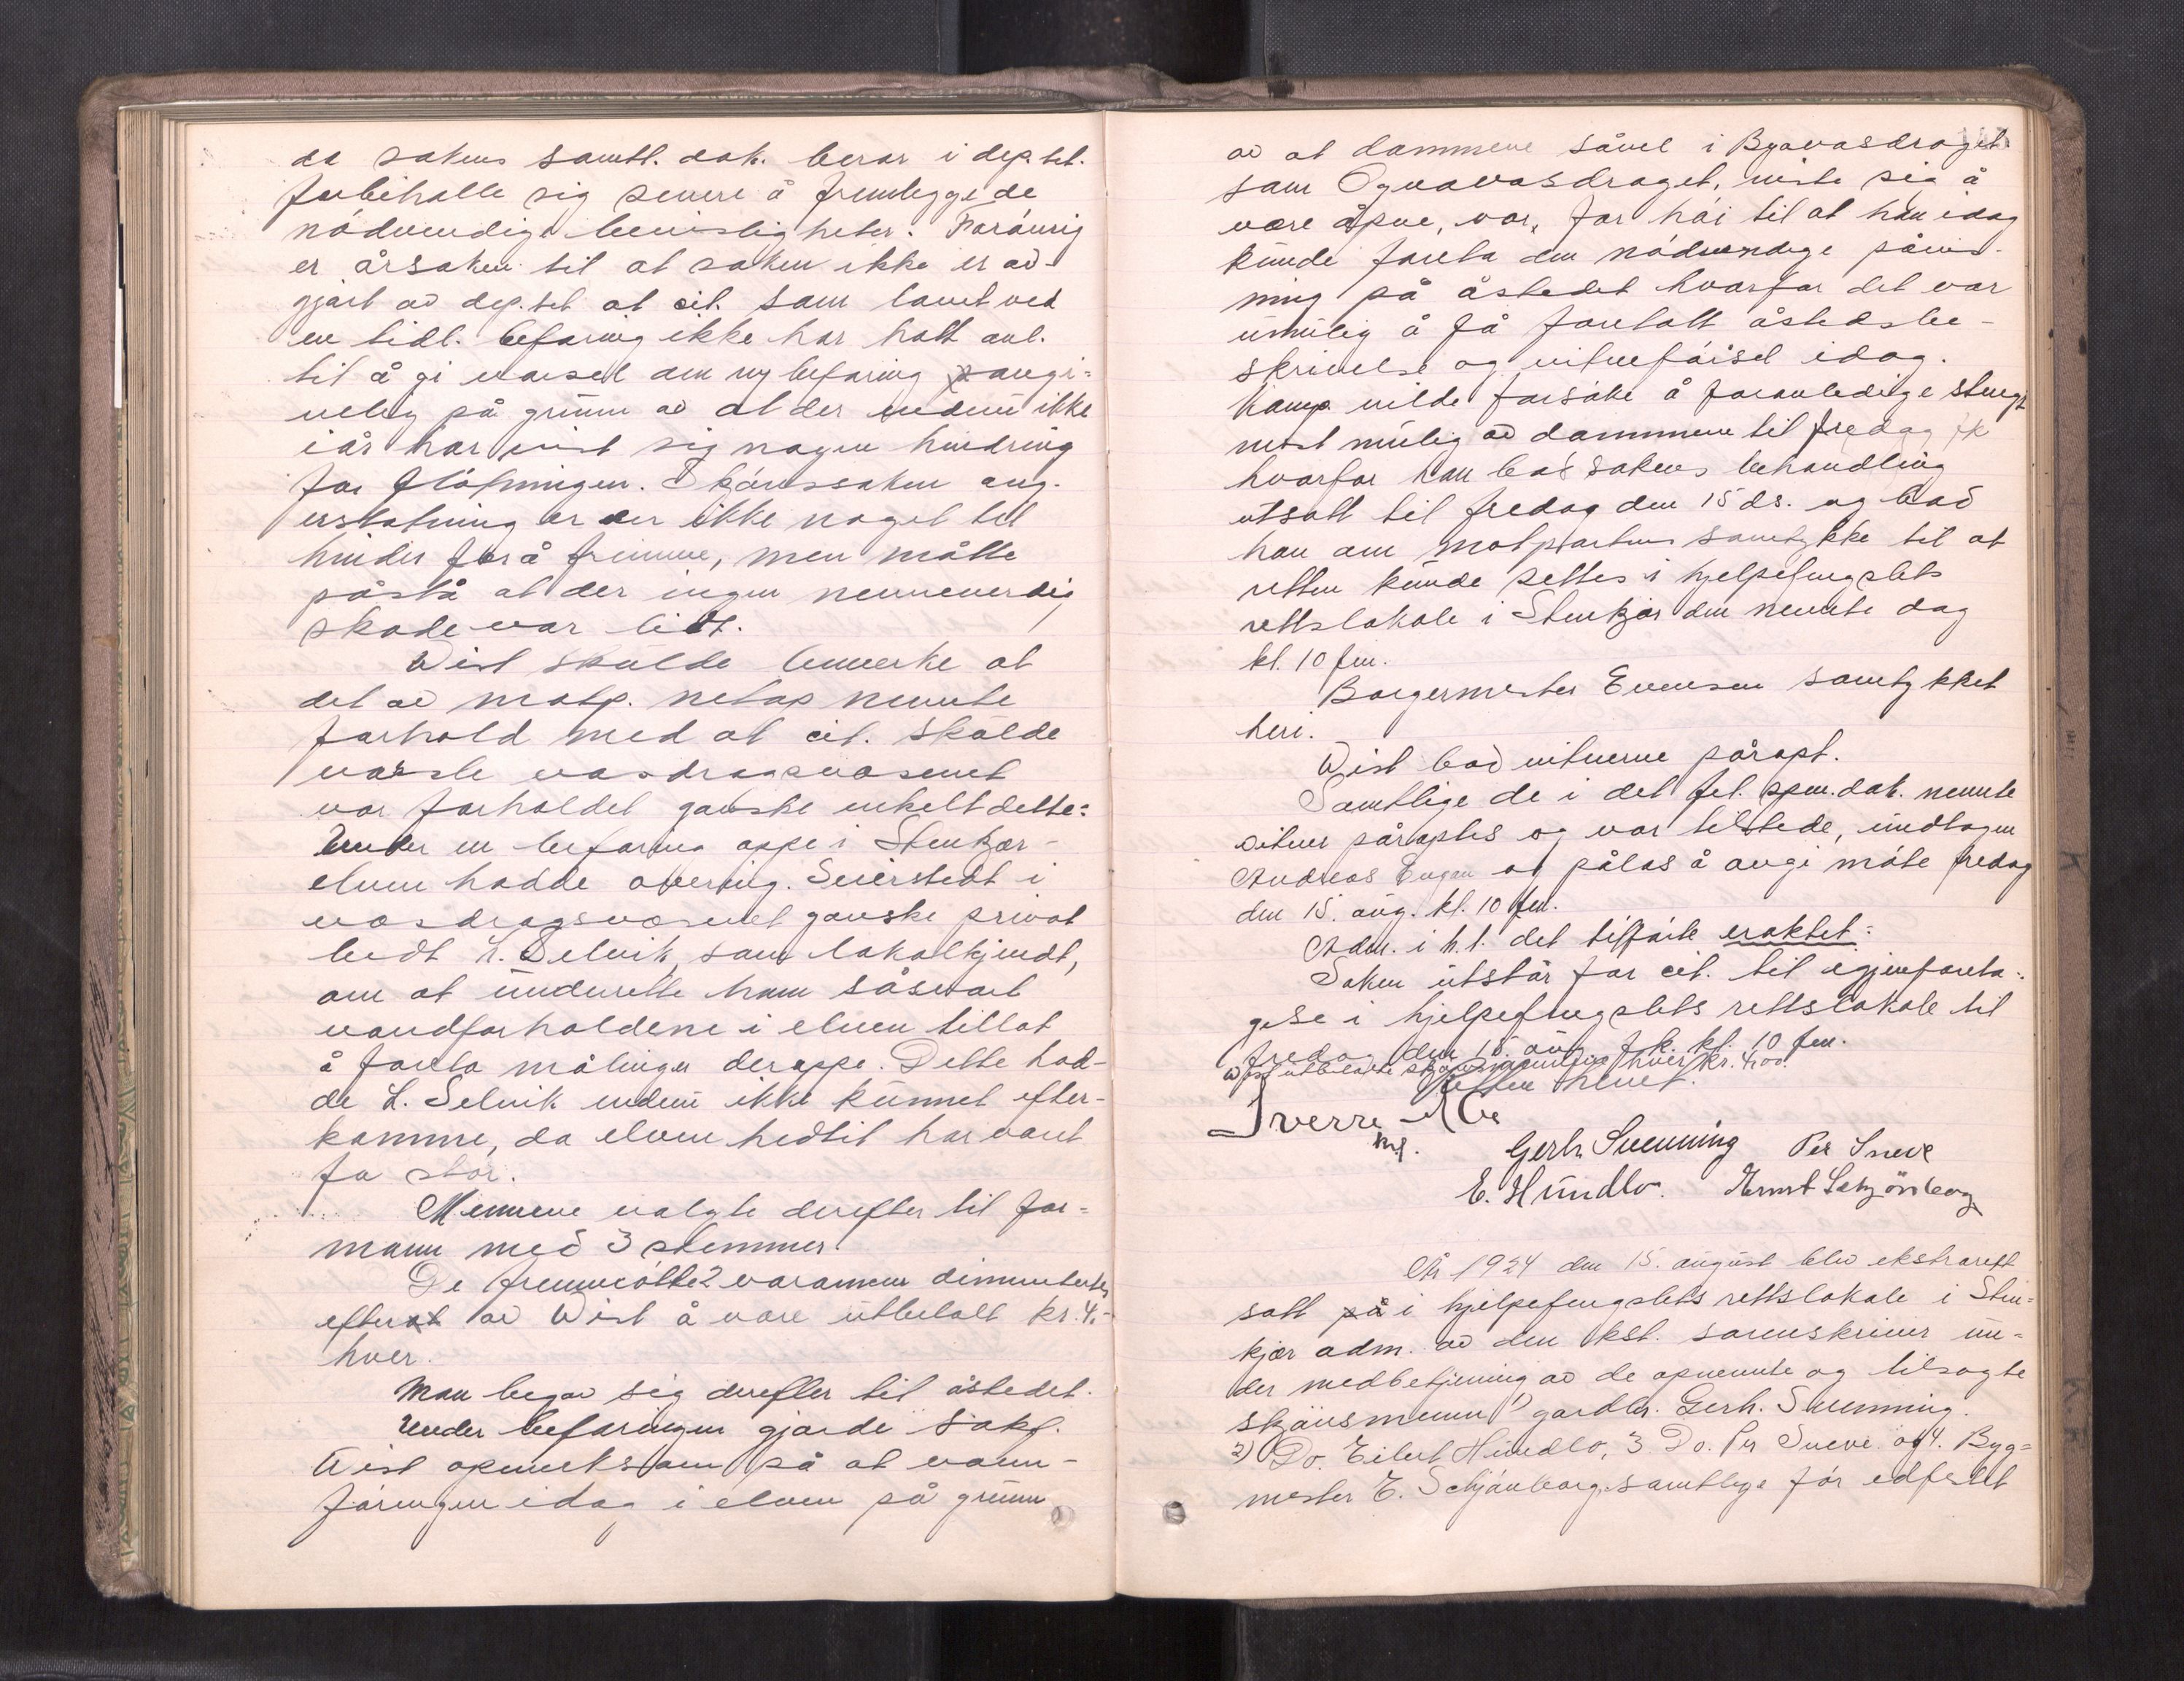 da sakens samtl. dok. beror i dep.tet.
forbeholde sig senere å fremlegge de
nödvendige bevisligheter. Forövrig
er årsaken til at saken ikke er av-
gjort av dep.tet at cit. som lovet ved
en tidl. befaring ikke har hatt anl.
til å gi varsel om ny befaring angi-
velig på grunn av at der endnu ikke
i år har vist sig nogen hindring
for flötningen. Skjönssaken ang.
erstatning er der ikke noget til
hinder for å fremme, men måtte
påstå at der ingen nevneverdig
skade var lidt.
Wist skulde bemerke at
det av motp. netop nevnte
forhold med at cit. skulde
varsle vasdragsvæsenet
var forholdet ganske enkelt dette:
Under en befaring oppe i Stenkjær-
elven hadde overing. Seierstedt i
vasdragsvæsenet ganske privat
bedt L. Selvik, som lokalkjendt,
om at underrette ham såsnart
vandforholdene i elven tillot
å foreta målinger deroppe. Dette had-
de L. Selvik endnu ikke kunnet efter-
komme, da elven hedtil har vært
for stor.
Mennene valgte derefter til for-
mann med 3 stemmer
De fremmötte 2 varamenn dimmitertes
efter av Wist å være utbetalt kr. 4.-
hver.
Man begav sig derefter til åstedet.
Under befaringen gjorde sakf.
Wist opmerksom på at vann-
föringen idag i elven på grunn
av at dammene såvel i Byavasdraget
som Ognavasdraget, viste sig å
være åpne, var for höi til at han idag
kunde foreta den nödvendige påvis-
ning på åstedet hvorfor det var
umulig å få foretatt åstedsbe-
skrivelse og vitneförsel idag.
Kamp vilde forsöke å foranledige stengt
mest mulig av dammene til fredag fk
hvorfor han bad sakens behandling
utsatt til fredag den 15 ds. og bad
han om motpartens samtykke til at
retten kunde settes i hjelpefengslets
rettslokale i Stenkjær den nevnte dag
kl. 10 fm.
Borgermester Evensen samtykket
heri.
Wist bad vitnerne påropt.
Samtlige de i det frl. spm.dok. nevnte
vitner påroptes og var tilstede, undtagen
Andreas Eugen og pålas å avgi möte fredag
den 15. aug. kl. 10 fm.
Adm. i h.t. det tilförte eraktet:
Saken utstår for cit. til igjenforeta-
gelse i hjelpefengslets rettslokale til
fredag den 15. aug. fk. kl. 10 fm.
Wist utbetalte skjönsmennene hver kr. 4.00
Retten hevet.
Sverre
Gerh. Svenning Per Sneve
E. Hundlo. Ernst Schjönberg
År 1924 den 15. august blev ekstrarett
satt på i hjelpefengslets rettslokale i Sten-
kjær adm. av den kst. sorenskriver un-
der medbetjening av de opnevnte og tilsagte
skjönsmenn 1) gardbr. Gerh. Svenning.
2) Do. Eilert Hundlo, 3 Do. Per Sneve og 4. Byg-
mester E. Schjönberg, samtlige för edfestet